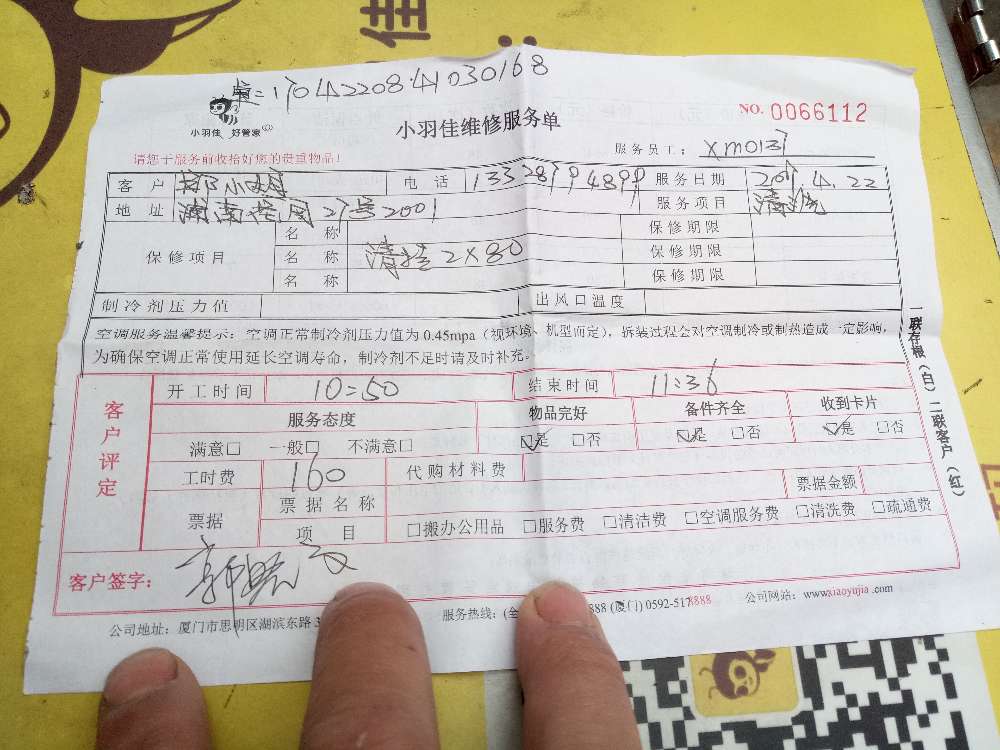 佳
17042208441030168
小羽佳 好管家
小羽佳维修服务单
NO. 0066112
请您于服务前收拾好您的贵重物品!
服务员工: XM0137
客户 电话 服务日期 2017.4.22
地址 27号2001 服务项目 清洗
保修项目 名称 保修期限
名称 清挂2X80 保修期限
名称 保修期限
制冷剂压力值 出风口温度
空调服务温馨提示: 空调正常制冷剂压力值为0.45mpa(视环境、机型而定),拆装过程会对空调制冷或制热造成一定影响,
为确保空调正常使用延长空调寿命,制冷剂不足时请及时补充。
一联存根(白)二联客户(红)
客户评定
开工时间 10:50 结束时间 11:36
服务态度 物品完好 备件齐全 收到卡片
满意□ 一般□ 不满意□ ☑是 □否 ☑是 □否 ☑是 □否
工时费 160 代购材料费
票据 票据名称 票据金额
项目 □搬办公用品 □服务费 □清洁费 □空调服务费 □清洗费 □疏通费
客户签字:
公司地址: 厦门市思明区湖滨东路3 服务热线:(全 888 (厦门) 0592-5178888 公司网站: www.xiaoyujia.com